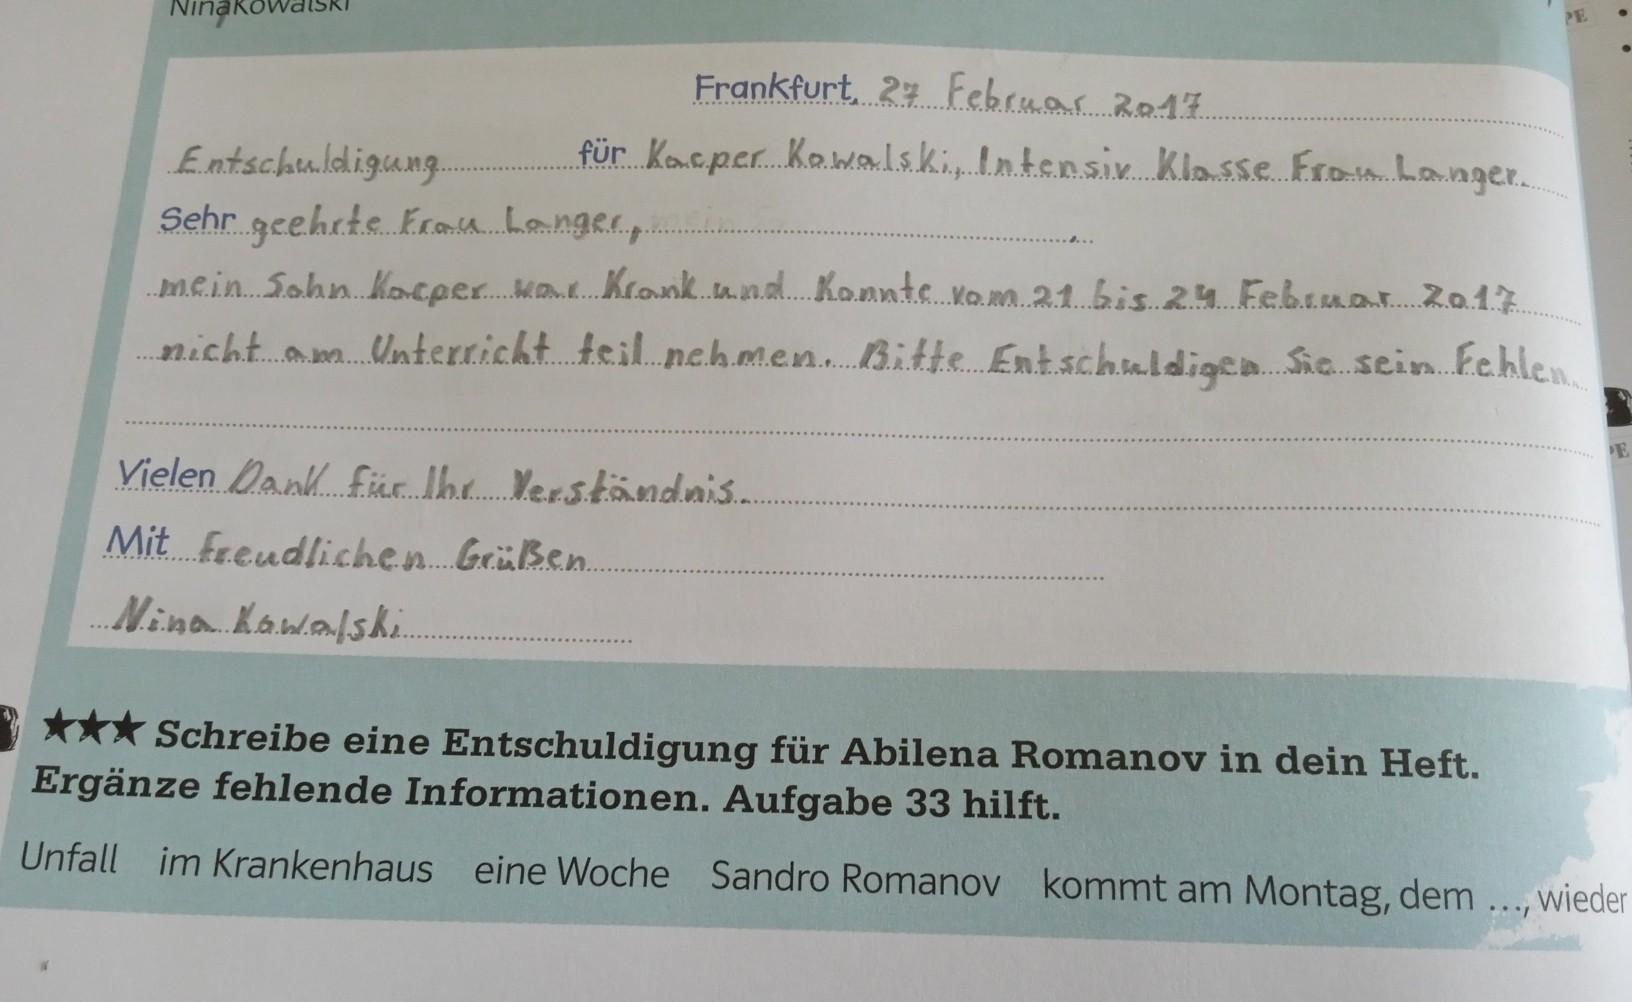 Nina Kowalski
Frankfurt, 27 Februar 2017
Entschuldigung für Kacper Kowalski, Intensiv Klasse Frau Langer.
Sehr geehrte Frau Langer,
mein Sohn Kacper war Krank und Konnte vom 21 bis 24 Februar 2017
nicht am Unterricht teil nehmen. Bitte Entschuldigen Sie sein Fehlen.
Vielen Dank für Ihr Verständnis.
Mit Freudlichen Grüßen
Nina Kowalski
★★★ Schreibe eine Entschuldigung für Abilena Romanov in dein Heft.
Ergänze fehlende Informationen. Aufgabe 33 hilft.
Unfall im Krankenhaus eine Woche Sandro Romanov kommt am Montag, dem ..., wieder